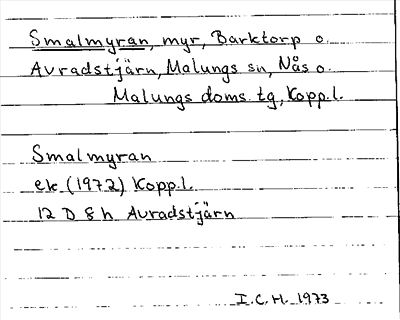 Smalmyran, myr, Barktorp o.
Avradstjärn, Malungs sn, Nås o.
Malungs doms. tg, Kopp. l.
Smalmyran
ek. (1972) Kopp. l.
12 D 8 h Avradstjärn
I. C. H. 1973